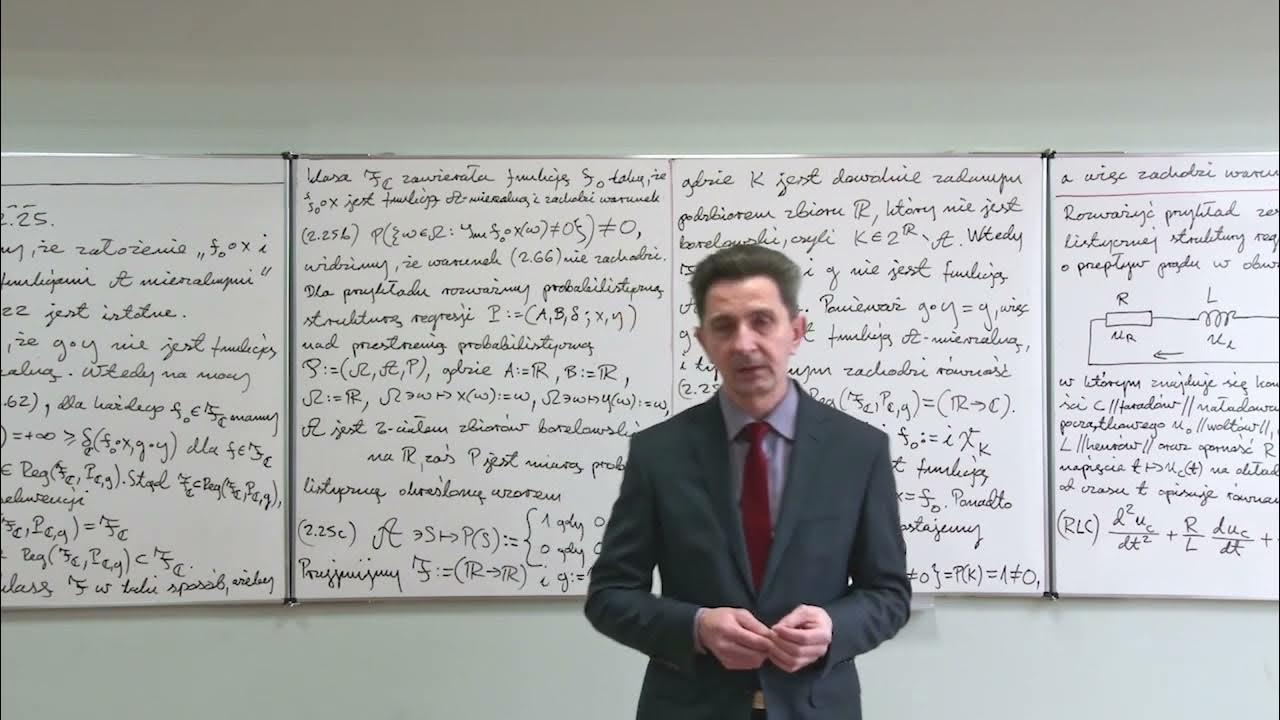 2.25.
ny, że założenie „f₀∘x i
funkcjami 𝒜 mierzalnymi”
22 jest istotne.
, że g∘y nie jest funkcją
alną. Wtedy na mocy
.62), dla każdego f₀∈ℱ_ℂ mamy
)=+∞ ≥ δ(f∘x, g∘y) dla f∈ℱ_ℂ
∈ Reg(ℱ_ℂ, P_ℂ,g). Stąd ℱ_ℂ⊂Reg(ℱ_ℂ, P_ℂ,g),
sekwencji
ℱ_ℂ, P_ℂ,g) = ℱ_ℂ
Reg(ℱ_ℂ, P_ℂ,g) ⊂ ℱ_ℂ.
klasą ℱ w taki sposób, ażeby
klasa ℱ_ℂ zawierała funkcję f₀ taką, że
f₀∘x jest funkcją 𝒜-mierzalną i zachodzi warunek
(2.25b) P({ω∈Ω: Im f₀∘x(ω)≠0}) ≠ 0,
widzimy, że warunek (2.66) nie zachodzi.
Dla przykładu rozważmy probabilistyczną
strukturę regresji P:=(A,B,δ; x,y)
nad przestrzenią probabilistyczną
:=(Ω,𝒜,P), gdzie A:=ℝ, B:=ℝ,
Ω:=ℝ, Ω∋ω↦x(ω):=ω, Ω∋ω↦y(ω):=ω,
𝒜 jest σ-ciałem zbiorów
na ℝ, zaś P jest miarą
listyczną określoną wzorem
(2.25c) 𝒜∋S↦P(S):={ 1 gdy 0
0 gdy
Przyjmijmy ℱ:=(ℝ→ℝ) i g:=
gdzie K jest dowolnie zadanym
podzbiorem zbioru ℝ, który nie jest
borelowski, czyli K∈2^ℝ∖𝒜. Wtedy
i g nie jest funkcją
. Ponieważ g∘y=g, więc
funkcją 𝒜-mierzalną,
zachodzi równość
Reg(ℱ_ℂ, P_ℂ,g)=(ℝ→ℂ).
f₀:=i χ_K
funkcją
x=f₀. Ponadto
≠0}=P(K)=1≠0,
a więc zachodzi
Rozważyć przykład
listycznej struktury
o przepływ prądu w
R L
u_R u_L
w którym znajduje się
ści C //faradów//
początkowego u₀ //woltów//,
L //henrów// oraz oporność R
napięcia t↦u_C(t) na
od czasu t opisuje
(RLC) d²u_C/dt² + R/L du_C/dt +